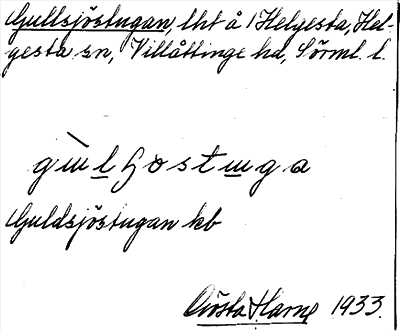 Gullsjöstugan, lht å 1 Helgesta, Hel-
gesta sn, Villåttinge hd, Sörml. l.
gùlʃostuga
Guldsjöstugan kb
Gösta Harne 1933.